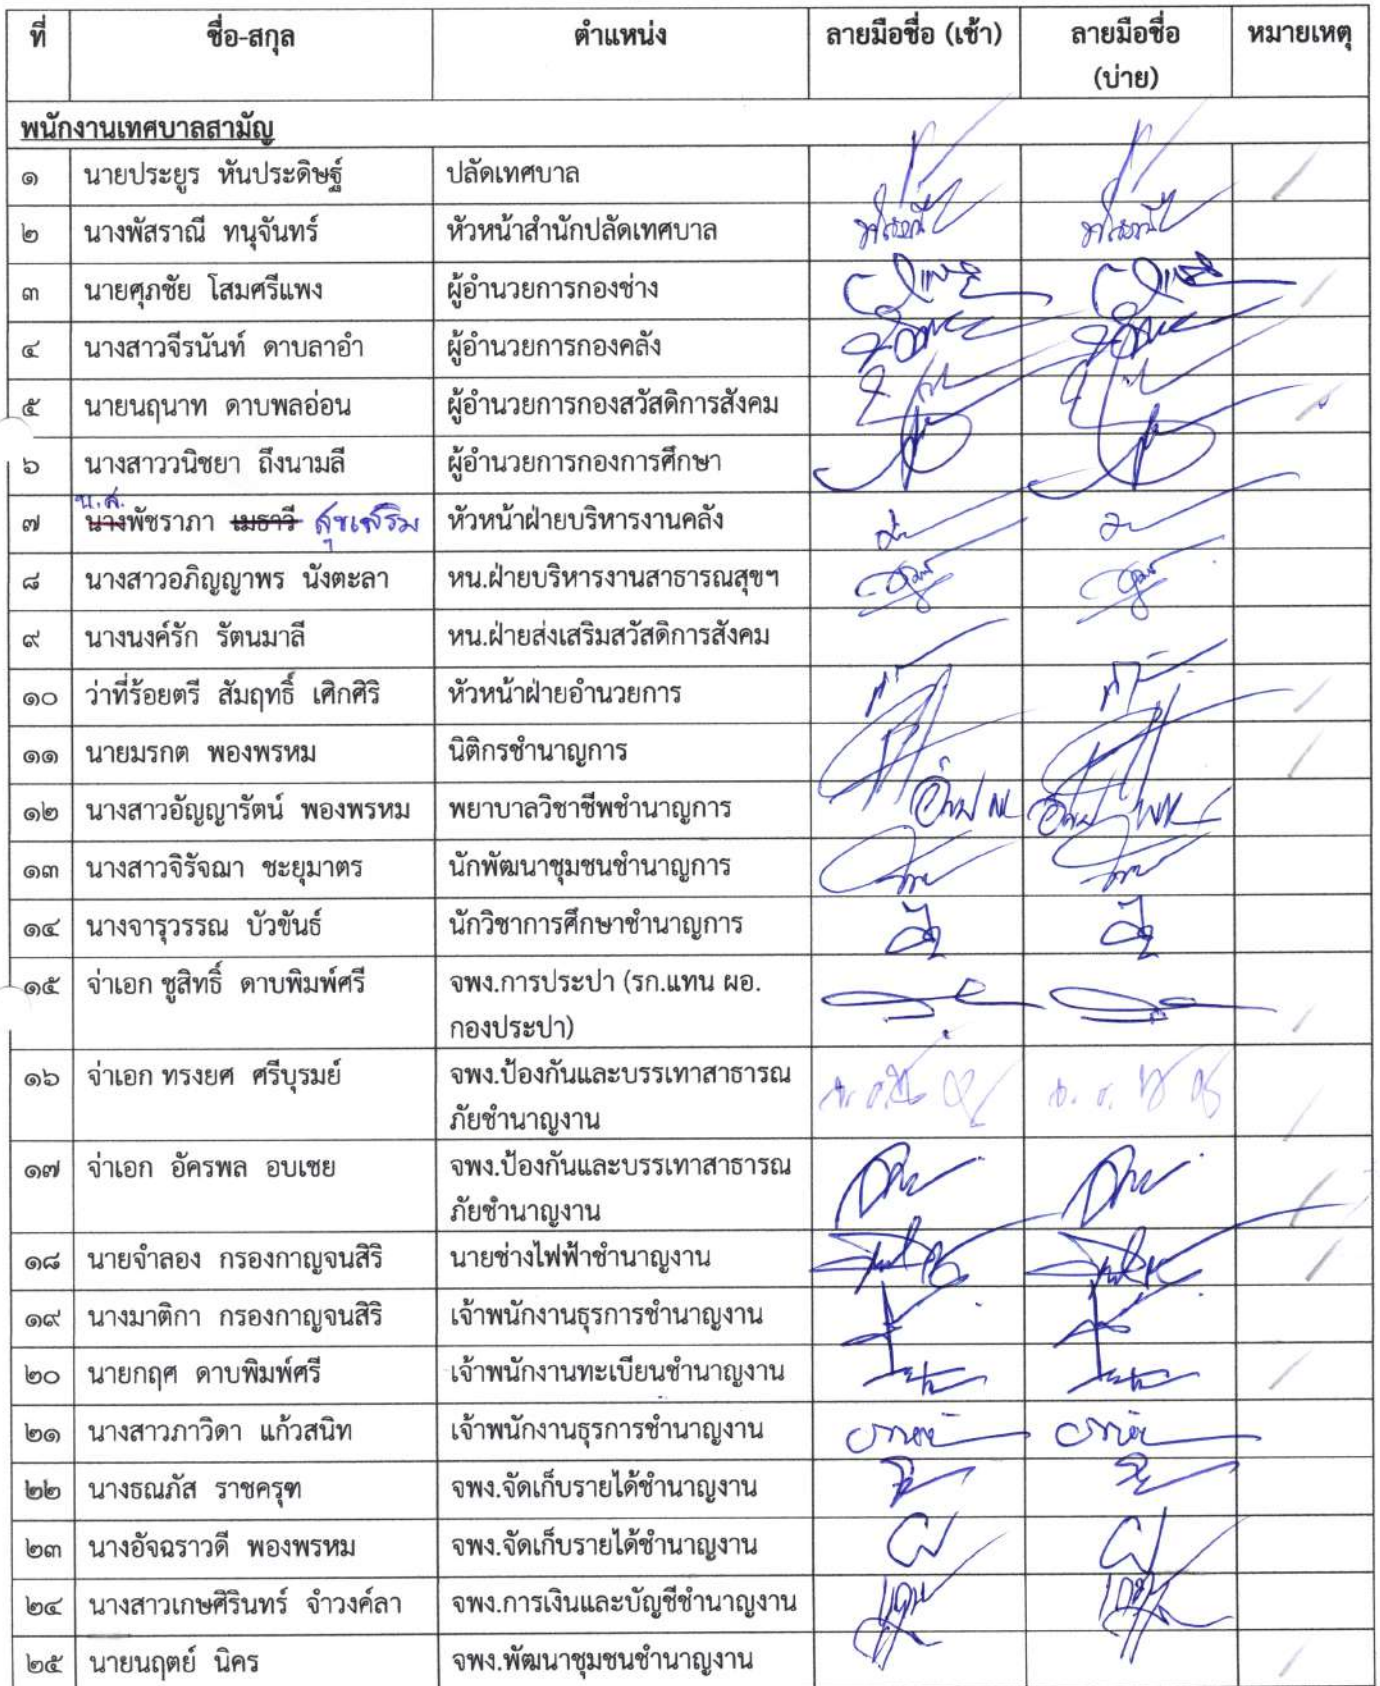 ที่ ชื่อ-สกุล ตำแหน่ง ลายมือชื่อ (เช้า) ลายมือชื่อ (บ่าย) หมายเหตุ
พนักงานเทศบาลสามัญ
๑ นายประยูร หันประดิษฐ์ ปลัดเทศบาล
๒ นางพัสราณี ทนุจันทร์ หัวหน้าสำนักปลัดเทศบาล
๓ นายศุภชัย โสมศรีแพง ผู้อำนวยการกองช่าง
๔ นางสาวจีรนันท์ ดาบลาอำ ผู้อำนวยการกองคลัง
๕ นายนฤนาท ดาบพลอ่อน ผู้อำนวยการกองสวัสดิการสังคม
๖ นางสาววนิชยา ถึงนามลี ผู้อำนวยการกองการศึกษา
น.ส.
๗ นางพัชราภา เมธาวี สุขเสริม หัวหน้าฝ่ายบริหารงานคลัง
๘ นางสาวอภิญญาพร นังตะลา หน.ฝ่ายบริหารงานสาธารณสุขฯ
๙ นางนงค์รัก รัตนมาลี หน.ฝ่ายส่งเสริมสวัสดิการสังคม
๑๐ ว่าที่ร้อยตรี สัมฤทธิ์ เศิกศิริ หัวหน้าฝ่ายอำนวยการ
๑๑ นายมรกต พองพรหม นิติกรชำนาญการ
๑๒ นางสาวอัญญารัตน์ พองพรหม พยาบาลวิชาชีพชำนาญการ
๑๓ นางสาวจิรัจฌา ชะยุมาตร นักพัฒนาชุมชนชำนาญการ
๑๔ นางจารุวรรณ บัวขันธ์ นักวิชาการศึกษาชำนาญการ
๑๕ จ่าเอก ชูสิทธิ์ ดาบพิมพ์ศรี จพง.การประปา (รก.แทน ผอ.
กองประปา)
๑๖ จ่าเอก ทรงยศ ศรีบุรมย์ จพง.ป้องกันและบรรเทาสาธารณ
ภัยชำนาญงาน
๑๗ จ่าเอก อัครพล อบเชย จพง.ป้องกันและบรรเทาสาธารณ
ภัยชำนาญงาน
๑๘ นายจำลอง กรองกาญจนสิริ นายช่างไฟฟ้าชำนาญงาน
๑๙ นางมาติกา กรองกาญจนสิริ เจ้าพนักงานธุรการชำนาญงาน
๒๐ นายกฤศ ดาบพิมพ์ศรี เจ้าพนักงานทะเบียนชำนาญงาน
๒๑ นางสาวภาวิดา แก้วสนิท เจ้าพนักงานธุรการชำนาญงาน
๒๒ นางธณภัส ราชครุฑ จพง.จัดเก็บรายได้ชำนาญงาน
๒๓ นางอัจฉราวดี พองพรหม จพง.จัดเก็บรายได้ชำนาญงาน
๒๔ นางสาวเกษศิรินทร์ จำวงค์ลา จพง.การเงินและบัญชีชำนาญงาน
๒๕ นายนฤตย์ นิคร จพง.พัฒนาชุมชนชำนาญงาน